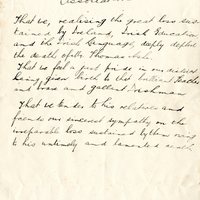 That we, realising the great loss sus-
tained by Ireland, Irish Education
and the Irish Language, deeply deplore
the death of Mr Thomas Ashe.
That we feel a just pride in our district
being given birth to that brilliant Teacher
and brave and gallant Irishman
That we tender to his relatives and
friends our sincerest sympathy on the
irreparable loss sustained by them owing
to his untimely and lamented death